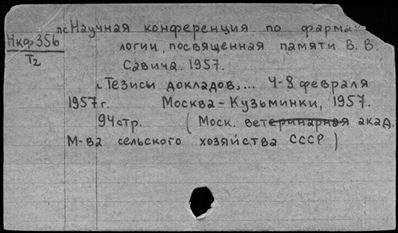 пс Научная конференция по фарма
Нкф356
Т2
логии, посвященная памяти В. В.
Савича. 1957.
Тезисы докладов,... 4-8 февраля
1957г. Москва-Кузьминки, 1957.
94стр. (Моск. ветеринарная акад.
М-ва сельского хозяйства СССР)